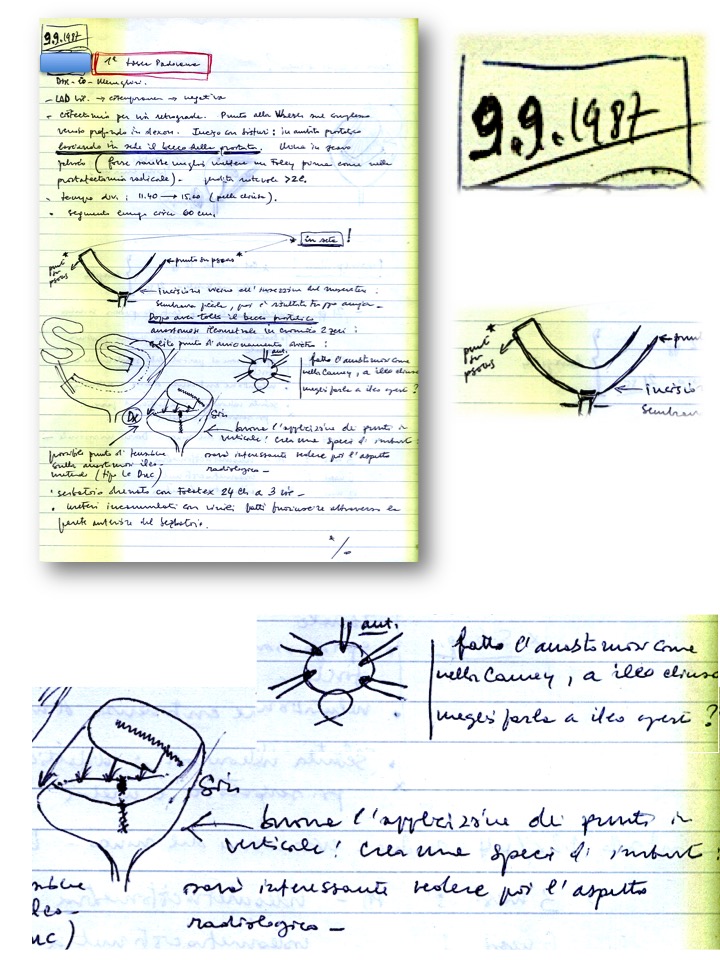 9.9.1987
1ª Vesica Padovana
- LAD bil. → estemporanea → negativa
- Cistectomia per via retrograda. Punto alla Walsh sul complesso
venoso profondo in dexon. Inciso con bisturi: in ambito prostatico
lasciando in sede il becco della prostata. Uretra in
(forse sarebbe meglio mettere un Foley prima come nella
prostatectomia radicale). - perdita notevole > 2 l.
- tempo 11.40 → 15.20 (pelle chiusa).
• segmento lungo circa 60 cm.
* in seta!
punti in psoas *
* punto in psoas
← incisione vicino all'inserzione del mesentere:
sembrava facile, poi è risultata troppo ampia -
Dopo aver tolto il becco prostatico
anastomosi ileouretrale in 2 zeri:
solito punto di avvicinamento dietro:
ant.
fatto l'anastomosi come
nella Camey, a ileo chiuso
meglio farla a ileo aperto?
Dx
Sin
← buona l'applicazione di punti in
verticale! crea una specie di imbuto:
sarà interessante vedere poi l'aspetto
radiologico -
possibile punto di tensione
sulla anastomosi ileo-
uretrale (tipo Le Duc)
• serbatoio drenato con Foletex 24 Ch a 3 vie -
• ureteri incannulati con fatti fuoriuscire attraverso la
parete anteriore del serbatoio.
•/..
9.9.1987
punti in psoas *
* punti
← incisio
sembrava
ant.
fatto l'anastomosi come
nella Camey, a ileo chiuso
meglio farla a ileo aperto?
Sin
← buona l'applicazione di punti in
verticale! crea una specie di imbuto:
sarà interessante vedere poi l'aspetto
radiologico -
ileo-
uc)